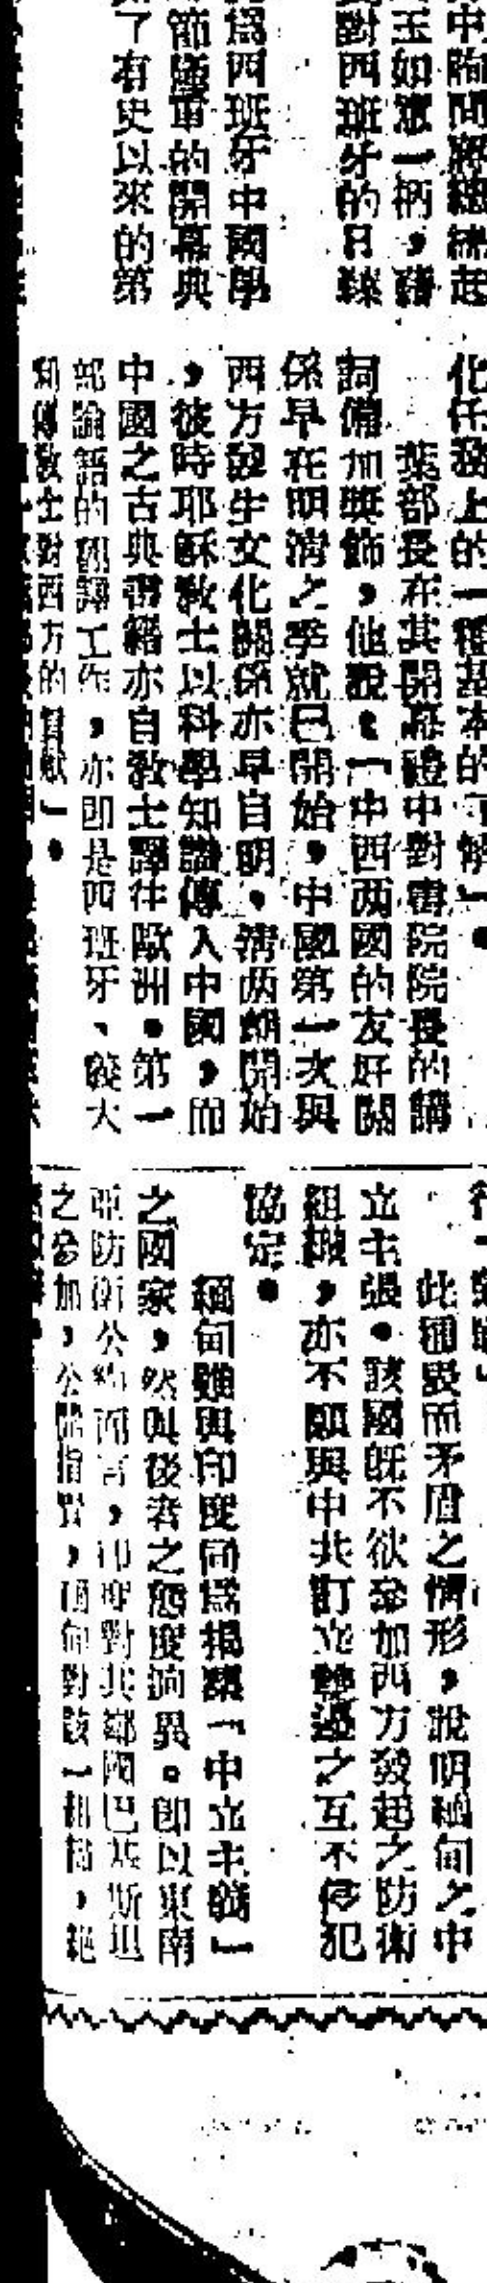 玉如意一柄，
對西班牙的日
為西班牙中國學
節隆重的開幕典
了有史以來的第
化任務上的一種基本的了解」。
葉部長在其開幕禮中對書院院長的講
詞備加獎飾，他說：「中西两國的友好關
係早在明清之季就已開始，中國第一次與
西方發生文化關係亦早自明，清两朝開始
，彼時耶穌教士以科學知識傳入中國，而
中國之古典書籍亦自教士譯往歐洲。第一
部論語的翻譯工作，亦即是西班牙、義大
利傳教士對西方的貢獻」。
此種愛而矛盾之情形，說明緬甸之中
立主張。該國既不欲參加西方發起之防衛
組織，亦不願與中共訂立之互不侵犯
協定。
緬甸雖與印度同為揭櫫「中立主義」
之國家，然與後者之態度逈異。即以東南
亞防衛公約而言，印度對其鄰國巴基斯坦
之參加，公開指責，緬甸對該一措，絕